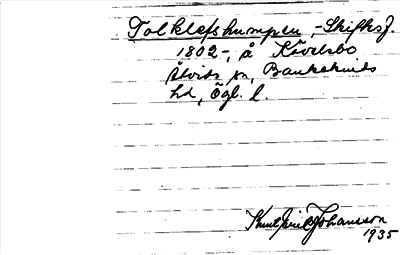 Tolklefshumpen, -Skiftesf.
1802-, å Kåvelsbo
Åtvids sn, Bankekinds
hd, Ögl. l.
Knut Emil Johansson
1935